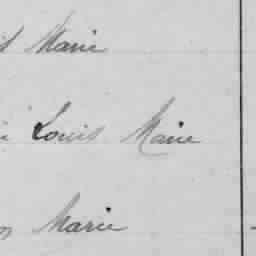 Marie
Louis Marie
Marie